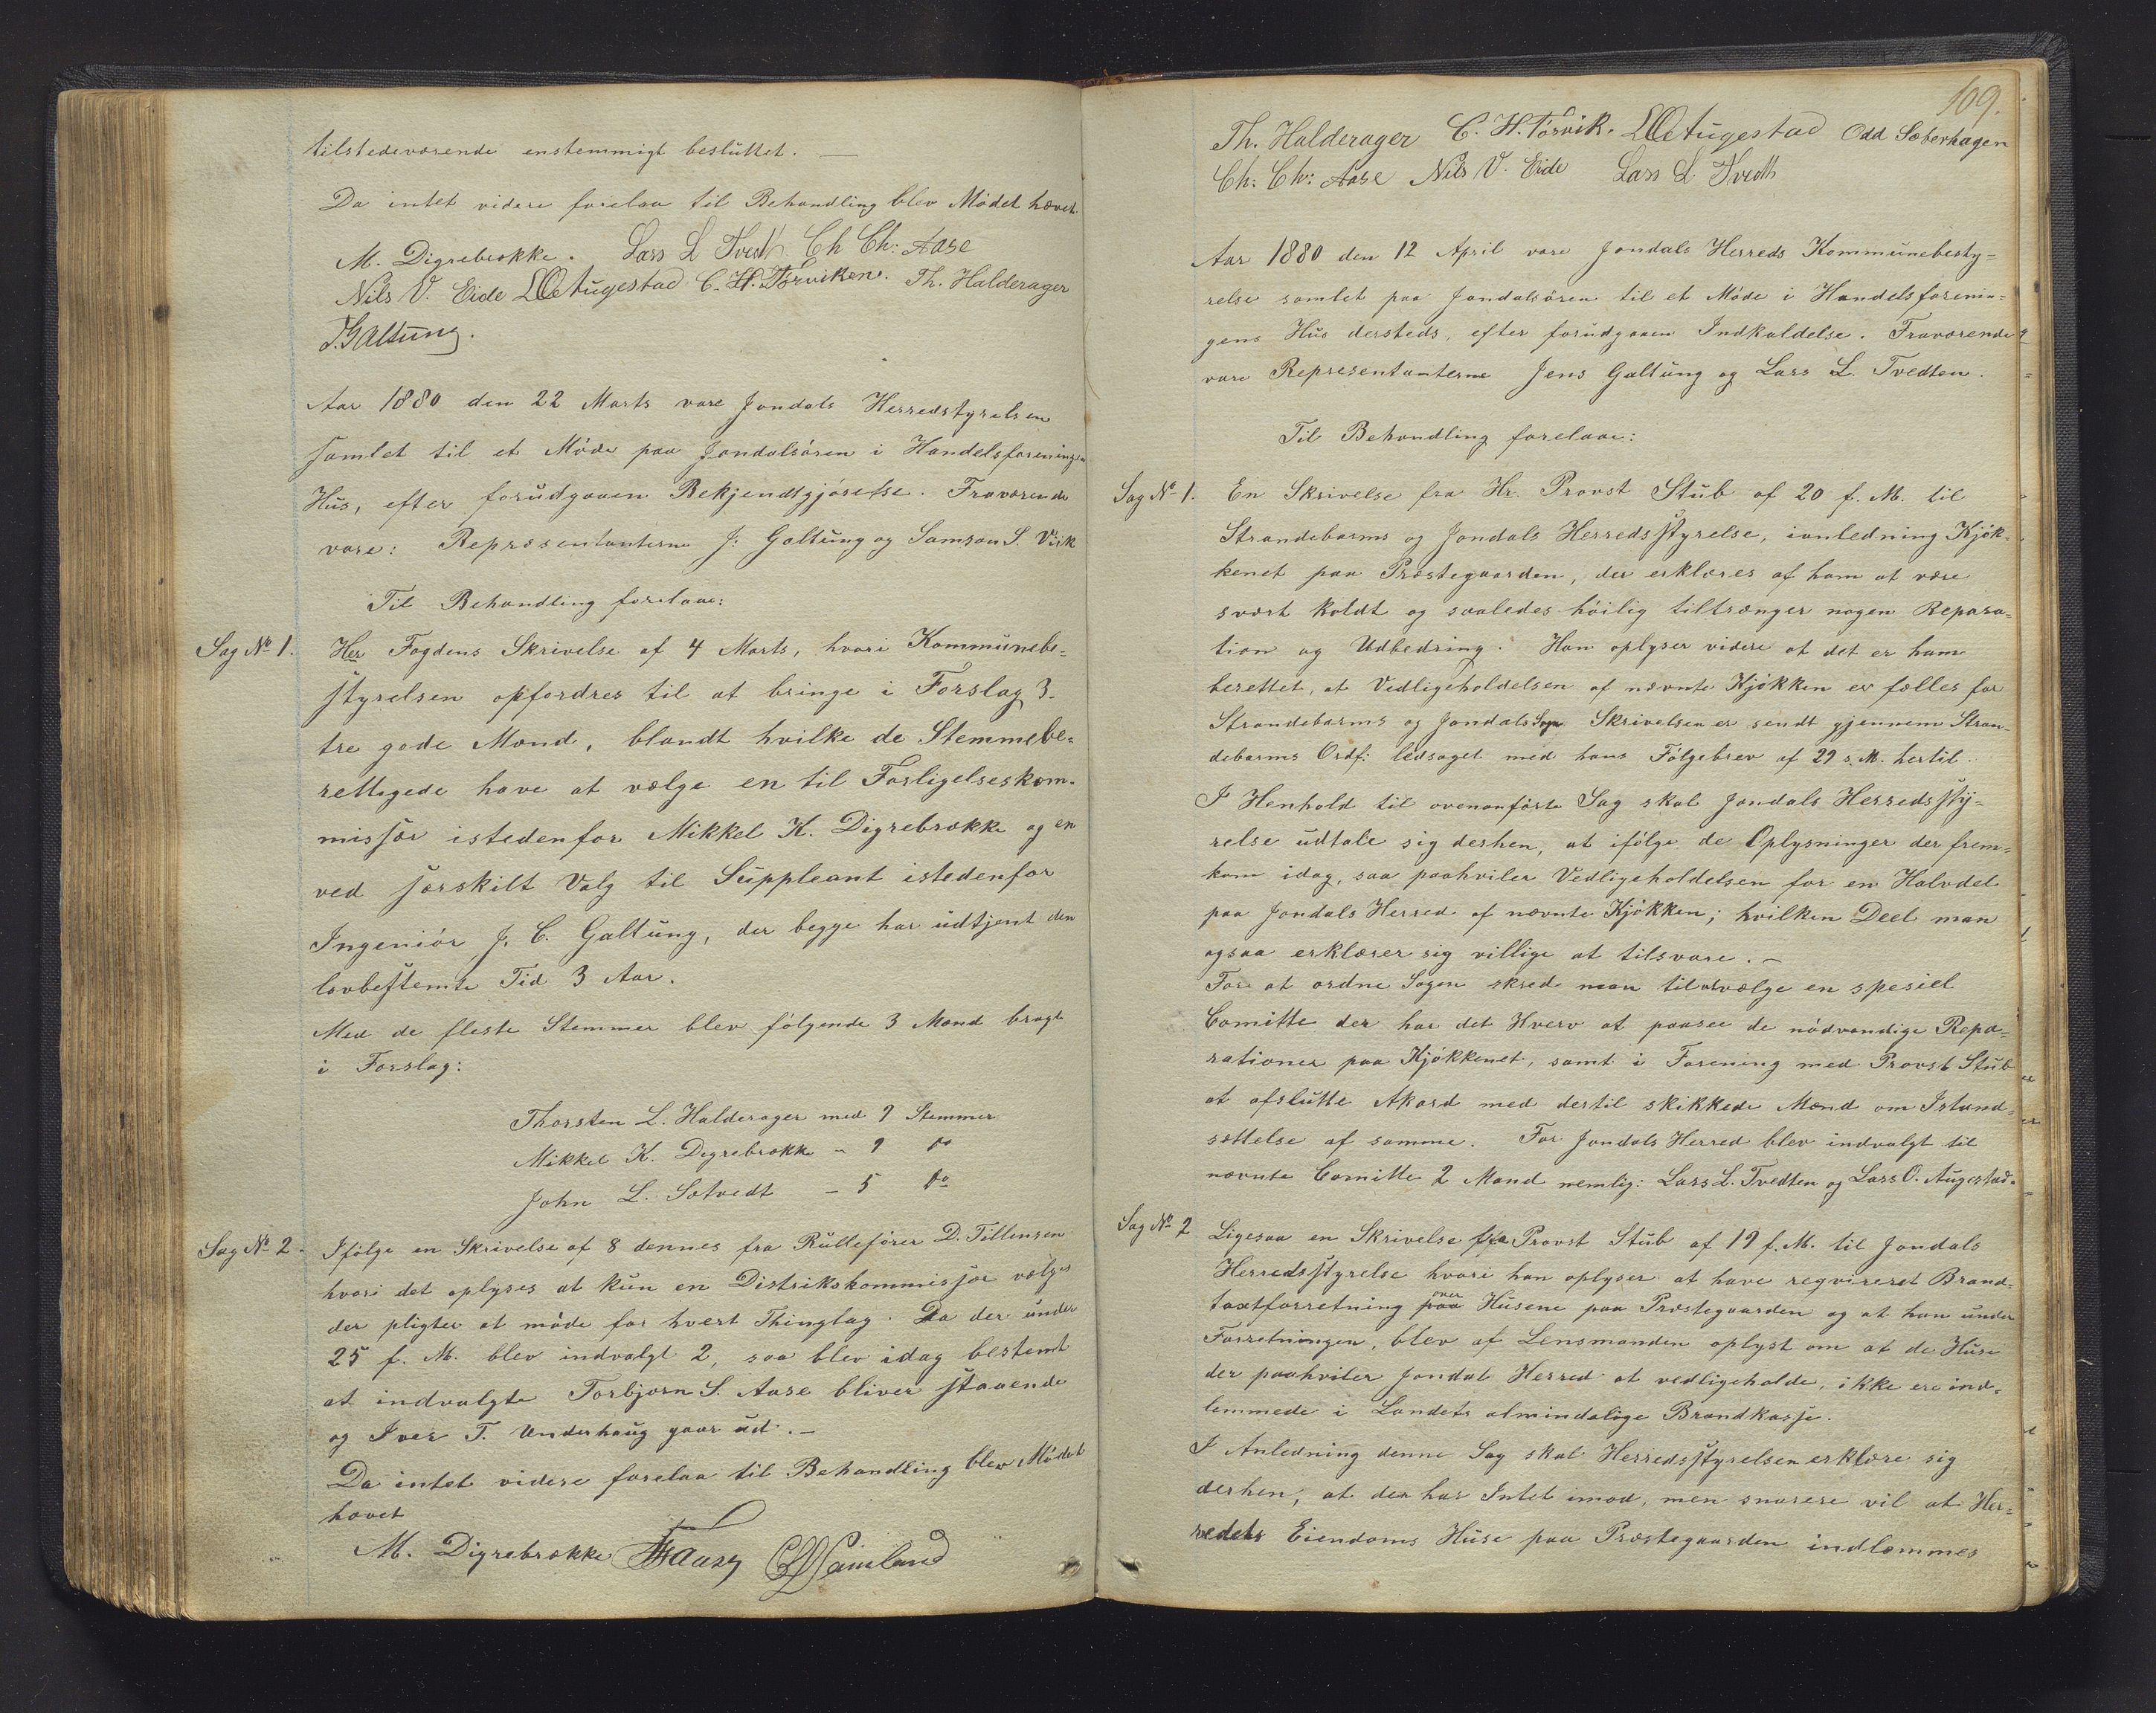 tilstedeværende enstemmigt besluttet. —
Da intet videre forelaa til Behandling blev Mödet hævet.
M. Digrebrække. Lars L Tvedt Ch Ch: Aase
Nils V. Eide LOAugestad C. H. Torviken. Th. Halderager
J. Galtung.
Aar 1880 den 22 Marts vare Jondals Herredstyrelsen
samlet til et Möde paa Jondalsören i Handelsforeningen
Hus, efter forudgaaen Bekjendtgjörelse. Fraværende
vare: Repræsentanterne J: Galtung og Samson S. Vik
Til Behandling forelaae:
Sag No 1. Her Fogdens Skrivelse af 4 Marts, hvori Kommunebe=
styrelsen opfordres til at bringe i Forslag 3-
tre gode Mænd, blandt hvilke de Stemmebe=
rettigede have at vælge en til Forligelseskom-
missær istedenfor Mikkel K. Digrebrække og en
ved særskilt Valg til Suppleant istedenfor
Ingeniör J. C. Galtung, der begge har udtjent den
lovbestemte Tid 3 Aar.
Med de fleste Stemmer blev fölgende 3 Mænd bragt
i Forslag:
Thorsten L. Halderager med 9 Stemmer
Mikkel K. Digrebrække - 9 do
John L. Sætvedt - 5 do
Sag No 2. Ifölge en Skrivelse af 8 dennes fra Rullefører D. Tillensen
hvori det oplyses at kun en Distrikskommissær vælges
der pligter at möde for hvert Thinglag. Da der under
25 f. M. blev indvalgt 2, saa blev idag bestemt
at indvalgte Torbjørn S. Aase bliver staaende
og Iver T. Underhaug gaar ud. -
Da intet videre forelaa til Behandling blev Mödet
hævet
M. Digrebrække
109.
Th. Halderager C. H. Torvik. LOAugestad Odd Sæverhagen
Ch: Ch: Aase Nils V. Eide Lars L. Tvedt
Aar 1880 den 12 April vare Jondals Herreds Kommunebesty=
relse samlet paa Jondalsören til et Möde i Handelsforenin=
gens Hus dersteds, efter forudgaaen Indkaldelse. Fraværende
vare Representanterne Jens Galtung og Lars L. Tvedten.
Til Behandling forelaae:
Sag No 1. En Skrivelse fra Hr. Provst Stub af 20 f. M. til
Strandebarms og Jondals Herredsstyrelse, ianledning Kjök-
kenet paa Præstegaarden, der erklæres af ham at være
svært koldt og saaledes höilig tiltrænger nogen Repara-
tion og Udbedring. Han oplyser videre at det er ham
berettet, at Vedligeholdelsen af nævnte Kjökken er fælles for
Strandebarms og Jondals Sogn Skrivelsen er sendt gjennem Stran-
debarms Ordf: ledsaget med hans Fölgebrev af 29 s. M. hertil.
I Henhold til ovenanförte Sag skal Jondals Herredssty=
relse udtale sig derhen, at ifölge de Oplysninger der frem=
kom idag, saa paahviler Vedligeholdelsen for en Halvdel
paa Jondals Herred af nævnte Kjökken; hvilken Deel man
ogsaa erklærer sig villige at tilsvare. -
For at ordne Sagen skred man til at vælge en spesiel
Comitte der har det Hverv at paasee de nödvendige Repa=
rationer paa Kjökkenet, samt i Forening med Provst Stub
at afslutte Akord med dertil skikkede Mænd om Istand=
sættelse af samme. For Jondals Herred blev indvalgt til
nævnte Comitte 2 Mænd nemlig: Lars L. Tvedten og Lars O. Augestad.
Sag No 2 Ligesaa en Skrivelse fra Provst Stub af 19 f. M. til Jondals
Herredsstyrelse hvori han oplyser at have reqvireret Brand=
taxtforretning paa over Husene paa Præstegaarden og at han under
Forretningen, blev af Lensmanden oplyst om at de Huse
der paahviler Jondal Herred at vedligeholde, ikke ere ind=
lemmede i Landets almindelige Brandkasse.
I Anledning denne Sag skal Herredsstyrelsen erklære sig
derhen, at den har Intet imod, men snarere vil at Her=
redets Eiendoms Huse paa Præstegaarden indlemmes